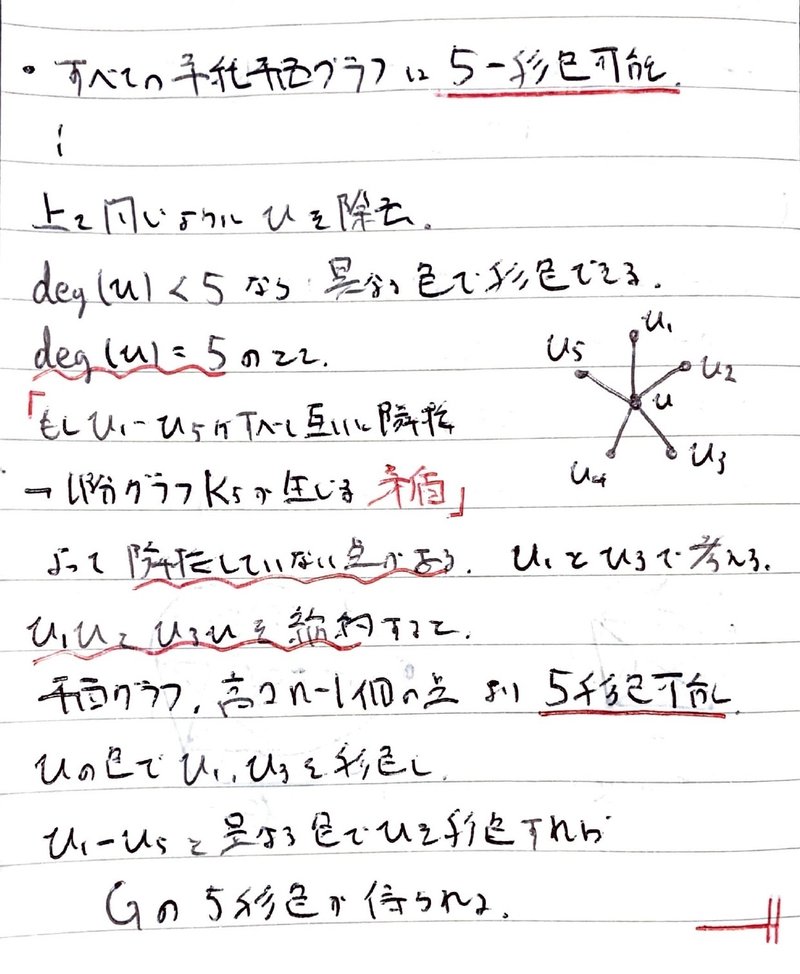 ・すべての単純平面グラフは 5-彩色可能.
∵
上と同じように uを除去.
deg(u) < 5 なら 異なる色で彩色できる.
deg(u) = 5 のとき.
u₁
u₅
u₂
u
u₄
u₃
「もし u₁-u₅がすべて互いに隣接
→ 部分グラフ K₅が生じる 矛盾」
よって 隣接していない点がある. u₁とu₃で考える.
u₁uとu₃uを縮約すると.
平面グラフ, 高々n-1個の点 より 5彩色可能.
uの色で u₁, u₃を彩色し
u₁-u₅と異なる色でuを彩色すれば
Gの5彩色が得られる.